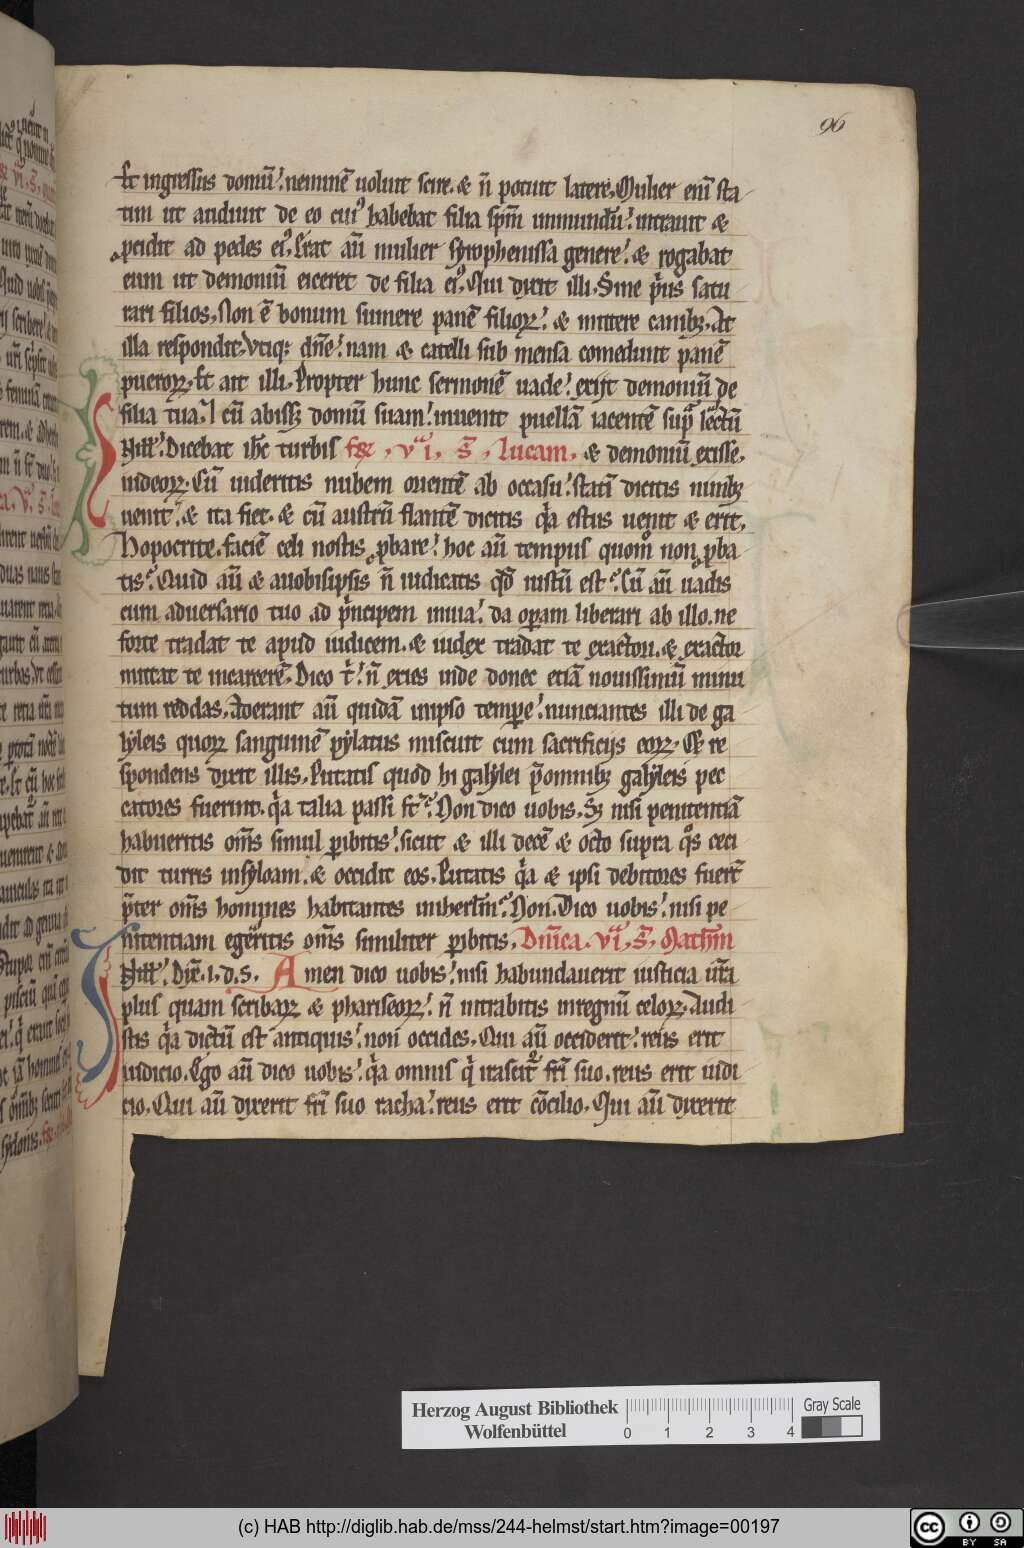 96
Et ingressus domū. neminē uoluit scire. & n̄ potuit latere. Mulier enī sta
tim ut audiuit de eo cuiꝰ habebat filia sp̄m inmundū. intrauit &
ꝓcidit ad pedes eiꝰ. Erat aū mulier syrophenissa genere. & rogabat
eum ut demoniū eiceret de filia eiꝰ. Qui dixit illi. Sine pͥus satu
rari filios. Non ē bonum sumere panē filioꝝ. & mittere canibꝫ. At
illa respondit. Vtiqꝫ dn̄e. nam & catelli sub mensa comedunt panē
pueroꝝ. Et ait illi. Propter hunc sermonē uade. exijt demoniū de
filia tua. Et cū abissꝫ domū suam. inuenit puellā iacentē supͣ lectū
& demoniū exisse.
In ill̄. Dicebat ih̄c turbis fꝝ. vͣi. s̄. lucam.
iudeoꝝ. Cū uideritis nubem orientē ab occasu. statī dicitis nimbꝫ
uenit. & ita fiet. & cū austrū flantē dicitis qͥa estus uenit & erit.
Hopocrite. faciē celi nostis ꝓbare. hoc aū tempus quom̊ non ꝓba
tis. Quid aū & auobisipsis n̄ iudicatis qd̄ iustū est. Cū aū uadis
cum aduersario tuo ad pͥncipem in uia. da oꝑam liberari ab illo. ne
forte tradat te apud iudicem. & iudex tradat te exactori. & exactor
mittat te incarcerē. Dico tͥ. n̄ exies inde donec etiā nouissimū minu
tum reddas. Aderant aū quidā inipso tempe. nunciantes illi de ga
lyleis quoꝝ sanguinē pylatus miscuit cum sacrificijs eoꝝ. & re
spondens dixit illis. Putatis quod hi galylei p̄omnibꝫ galyleis pec
catores fuerint. qͥa talia passi st̄. Non dico uobis. Sꝫ nisi penitentiā
habueritis om̄s simul ꝑibitis. sicut & illi decē & octo supra q̊s ceci
dit turris insyloam. & occidit eos. Putatis qͥa & ipsi debitores fuer̄t
p̄ter om̄s homines habitantes inihrl̄m. Non. Dico uobis. nisi pe
nitentiam egeritis om̄s similiter ꝑibitis. Dn̄ica. vͣi. s̄. Math̄m
In ill̄. Dix̄. i. d. s. Amen dico uobis. nisi habundauerit iusticia ur̄a
plus quam scribaꝝ & phariseoꝝ. n̄ intrabitis inregnū celoꝝ. Audi
stis qͥa dictū est antiquis. non occides. Qui aū occiderit. reus erit
iudicio. Ego aū dico uobis. qͥa omnis qͥ irascitꝰ fr̄i suo. reus erit iudi
cio. Qui aū dixerit fr̄i suo racha. reus erit cōcilio. Qui aū dixerit
Herzog August Bibliothek
Wolfenbüttel
0 1 2 3 4
Gray Scale
(c) HAB http://diglib.hab.de/mss/244-helmst/start.htm?image=00197
cc BY SA